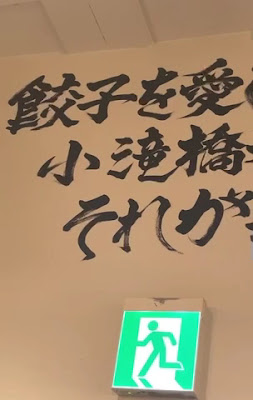 餃子を愛
小滝橋
それが